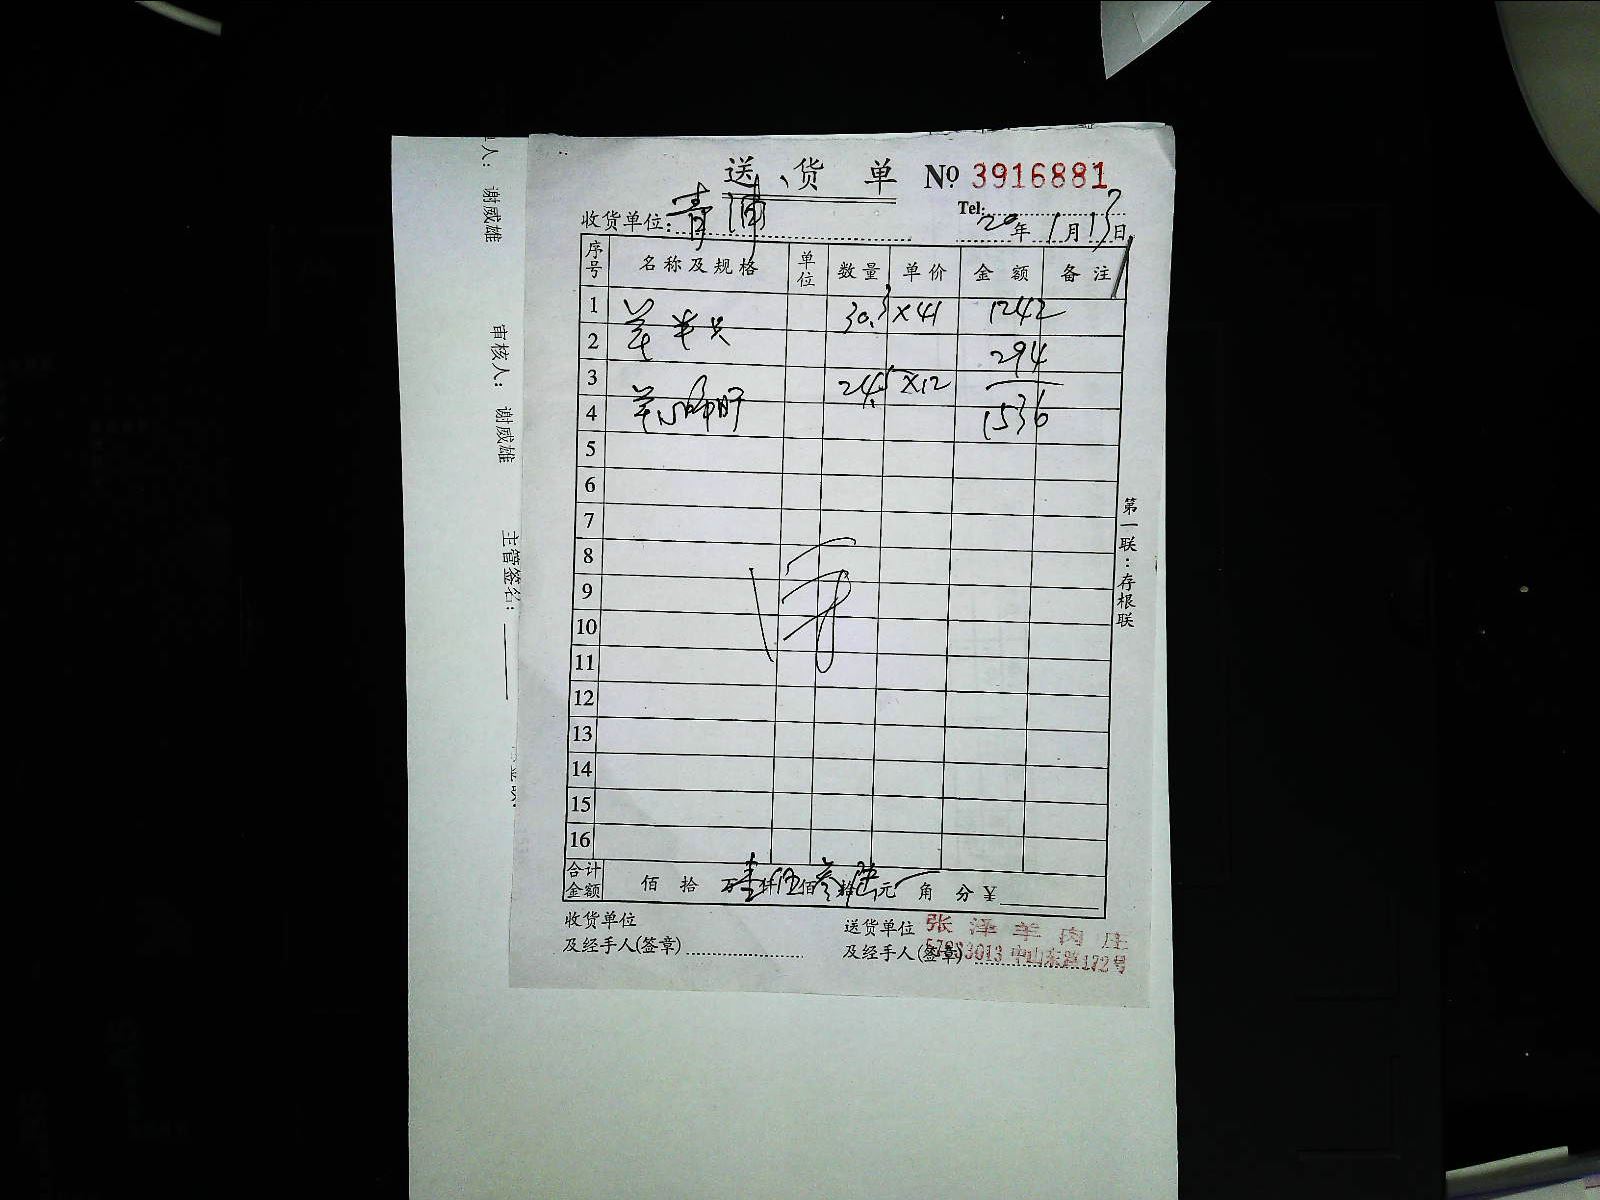 送货单 № 3916881
Tel:
收货单位: 青浦 20年1月17日
序号 名称及规格 单位 数量 单价 金额 备注
1 羊半只 30.3 ×41 1242
2 294
3 羊心肺肝 24.5 ×12
4 1536
5
6
7
8
9
10
11
12
13
14
15
16
合计金额 佰 拾 万壹仟伍佰叁拾陆元 角 分 ¥
收货单位 送货单位 张泽羊肉庄
及经手人(签章) 及经手人(签章) 中山东路172号
第一联:存根联
人: 谢威雄 审核人: 谢威雄 主管签名: